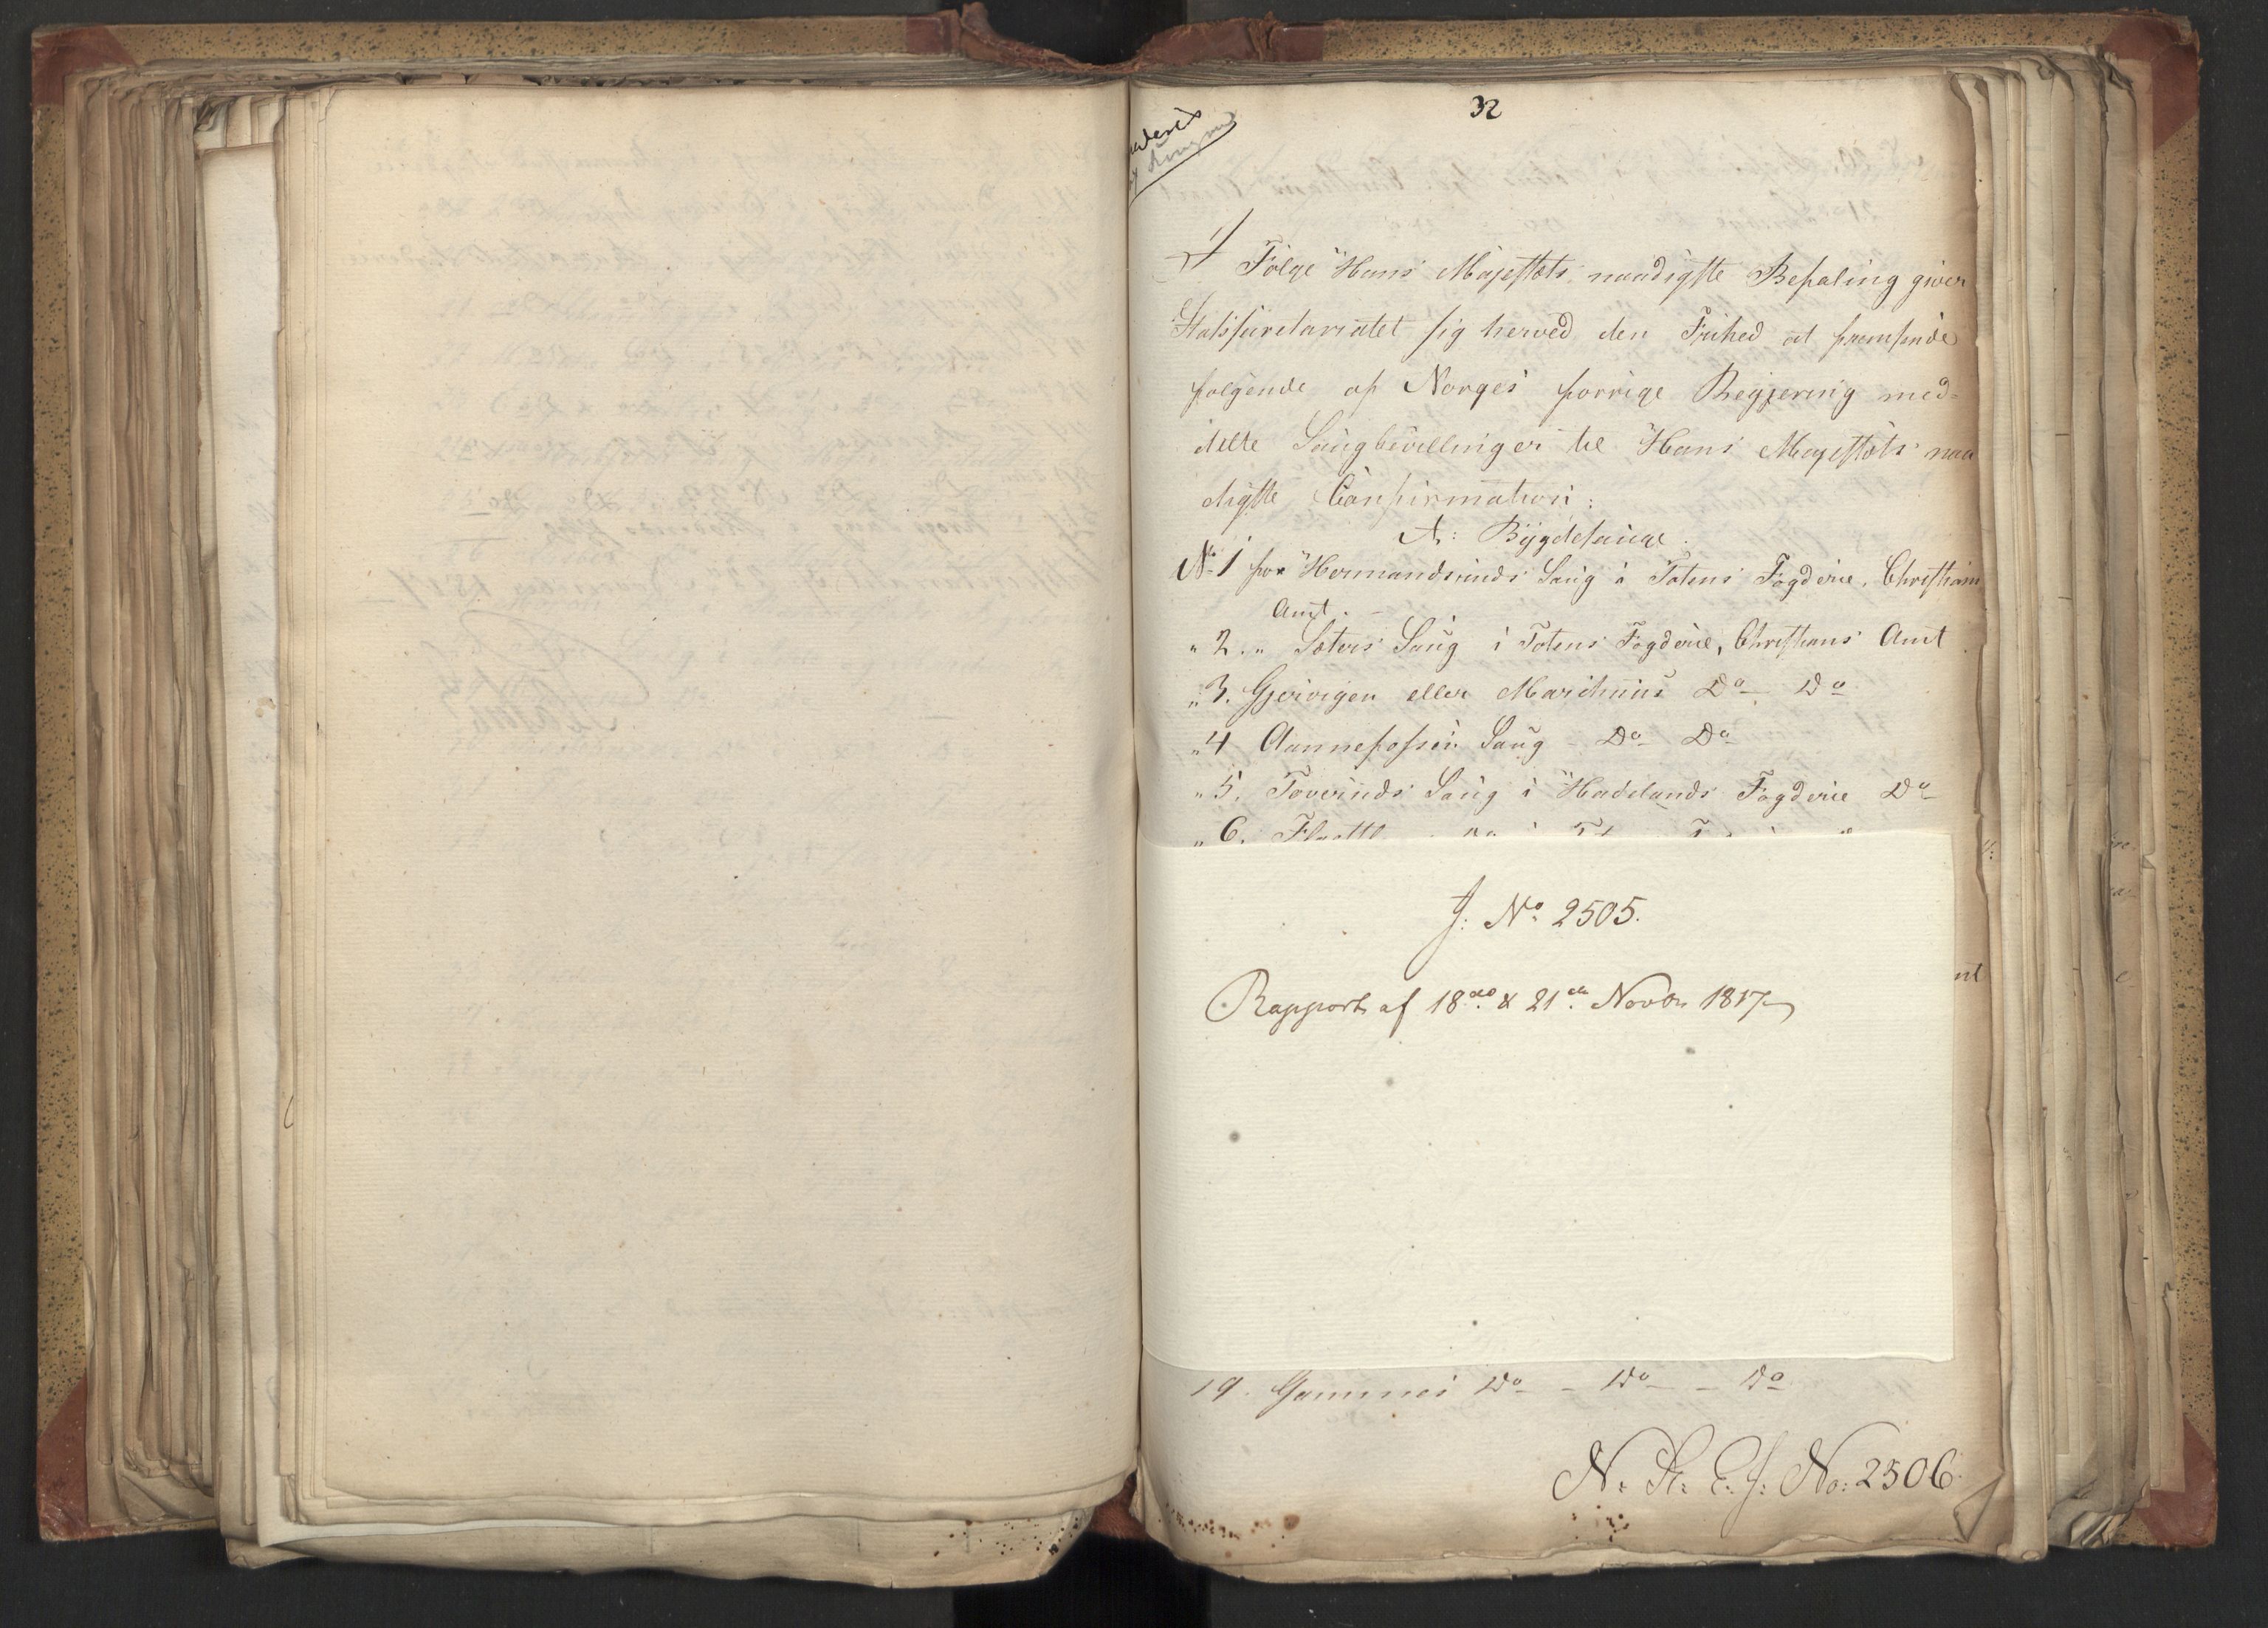 32
I Følge Hans Majestæts naadigste Befaling giver
Statssecretariatet sig herved den Frihed at fremsende
følgende af Norges forrige Regjering med-
delte Saugbevillinger til Hans Majestæts naa
digste Confirmation:
A: Bygdesauge.
No 1 for Hermandsrinds Saug i Totens Fogderie, Christians
Amt.
" 2. " Sæters Saug i Totens Fogderie, Christians Amt
" 3. Gjervigen eller Marihuus Do Do
" 4 Aannefossen Saug - Do Do
" 5. Toveruds Saug i Hadelands Fogderie Do
" 6.
J: No 2505.
Rapport af 18de & 21de Novbr 1817
19. Gammes Do - Do - Do
N. St. E. J: No: 2506.